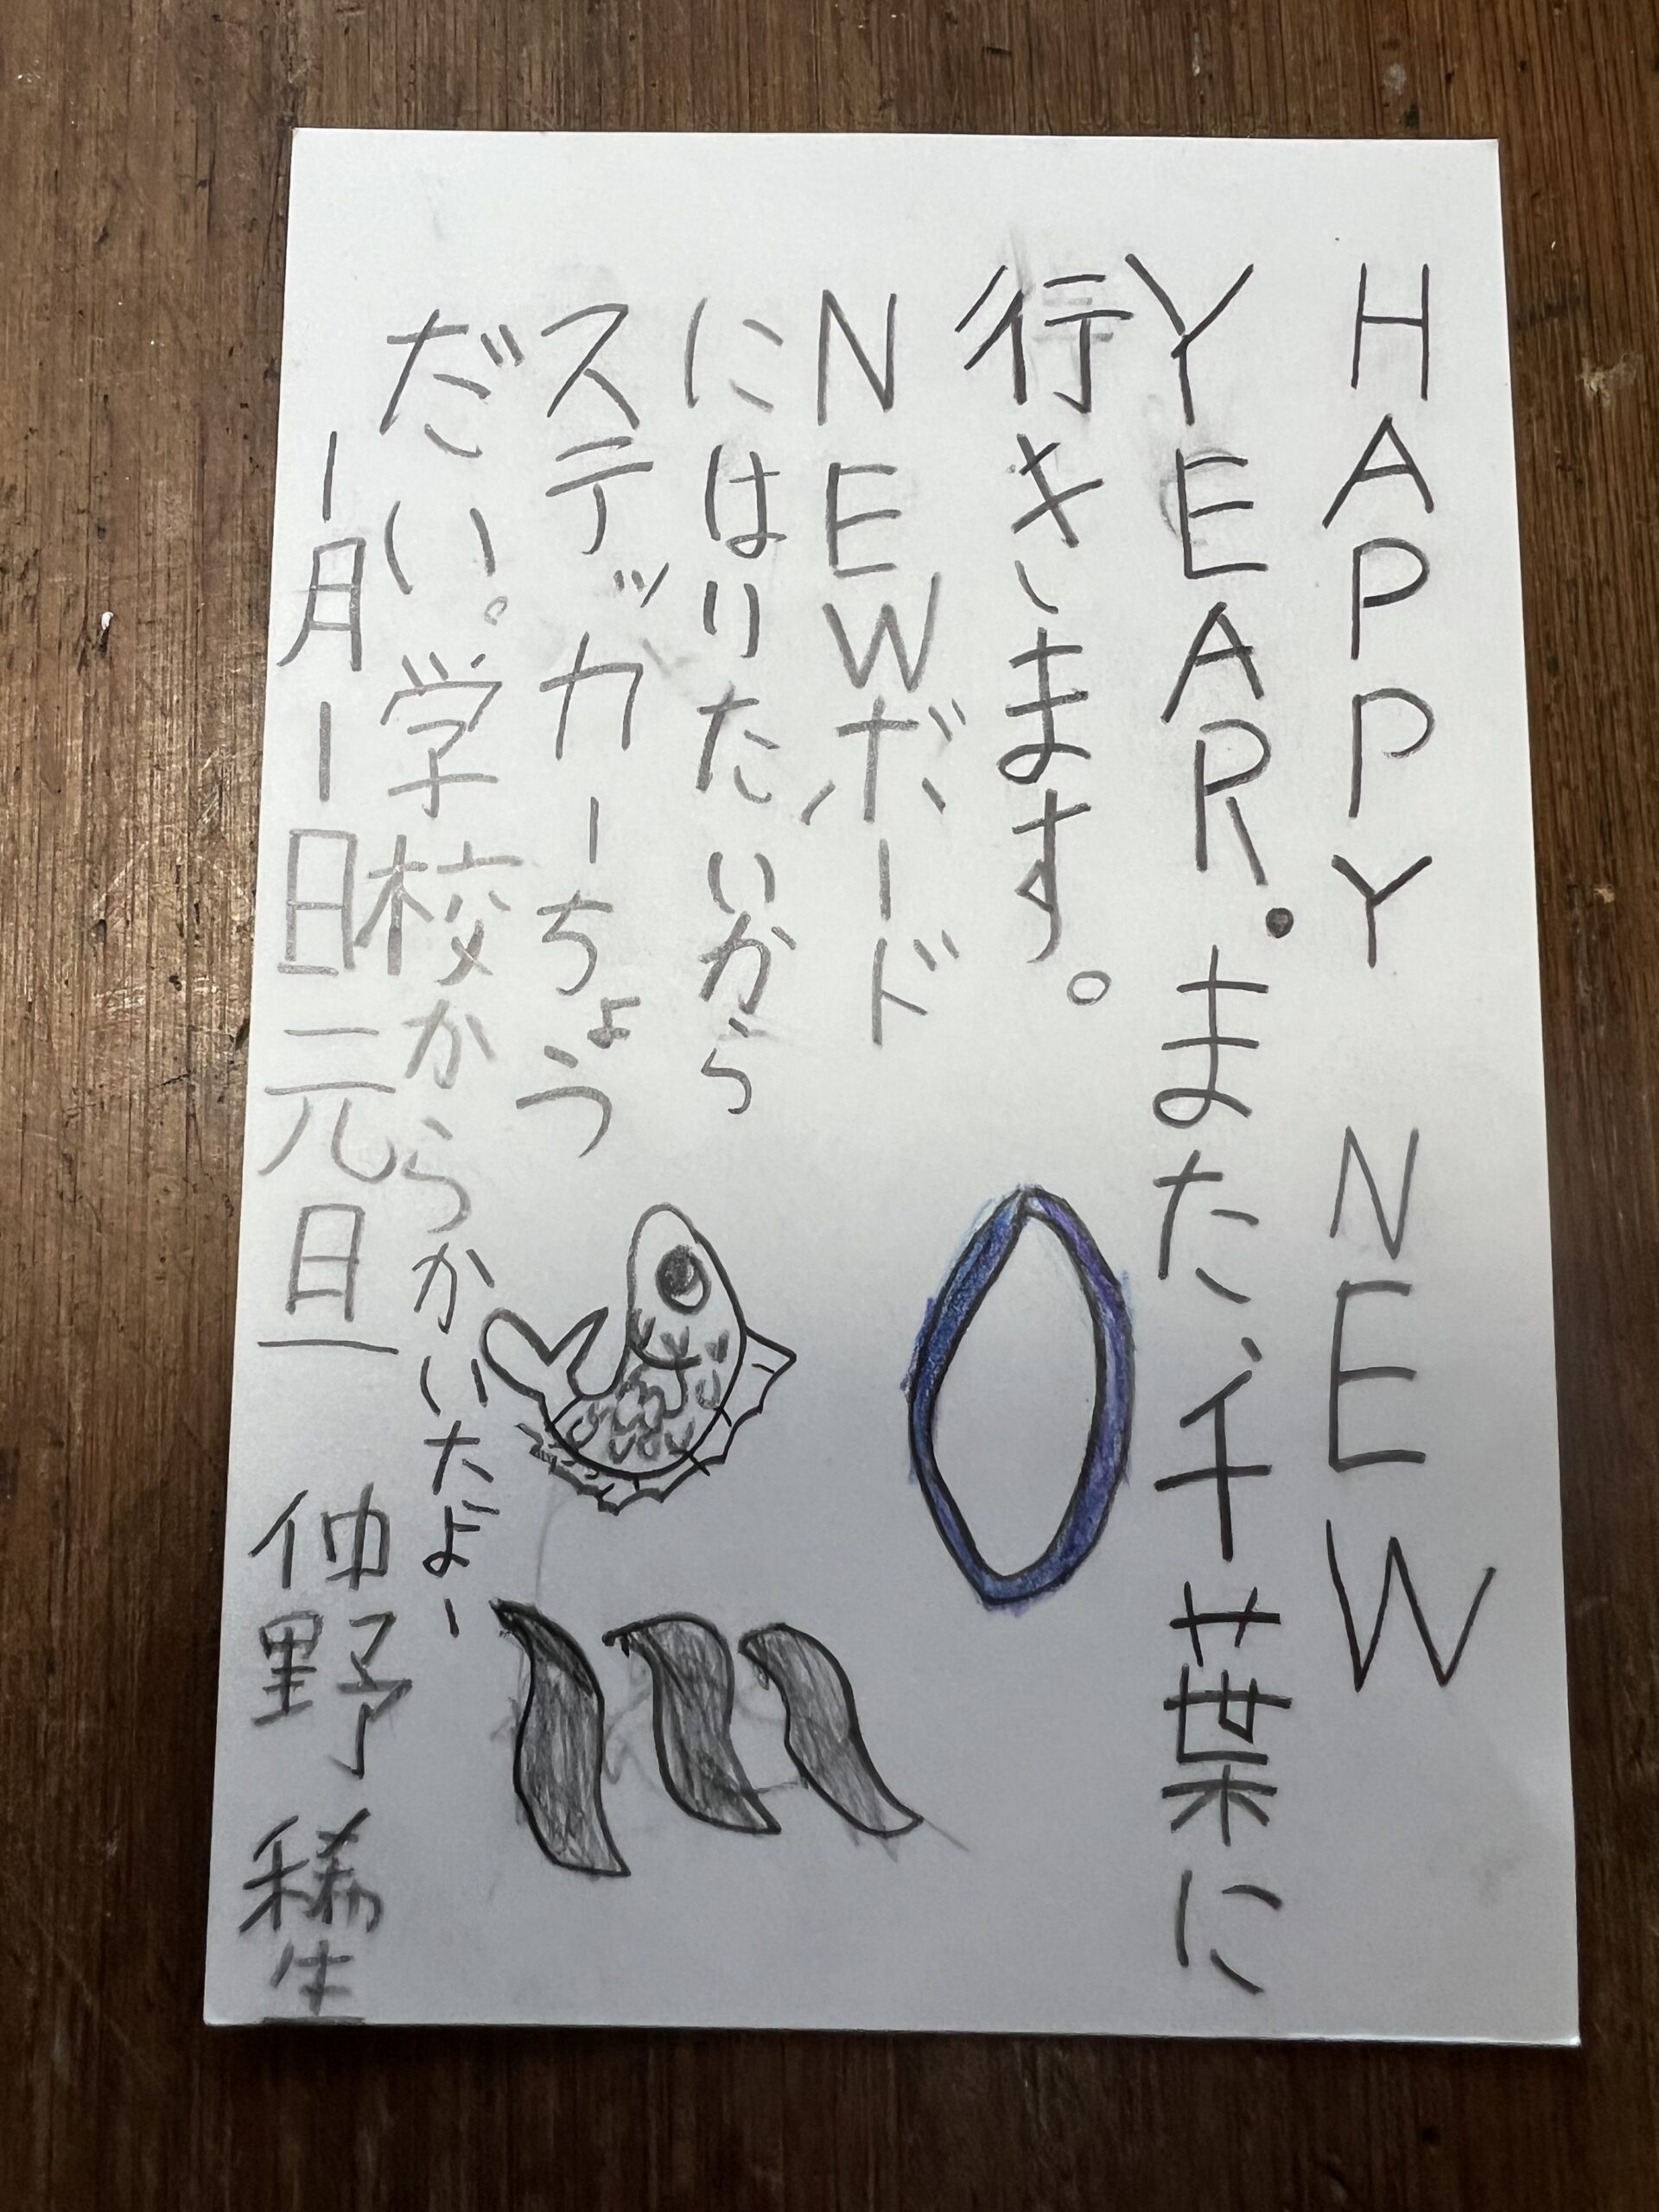 HAPPY NEW
YEAR.また千葉に
行きます。
NEWボード
にはりたいから
ステッカーちょう
だい。学校からかいたよー
一月一日元旦 仲野稀生